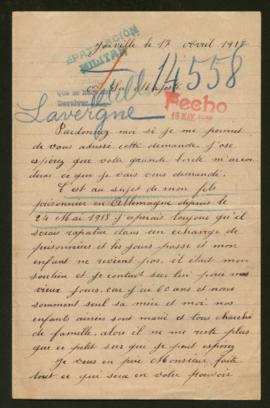 Joiville le 17 Avril 1919
REPATRIACION
MILITAR
14558
Lavergne
Fecho
Pardonnez moi si je me permet
de vous adressé cette demande. J'ose
espérez que votre grande bonté m'accor
dera ce que je vais vous demandé.
C'est au sujet de mon fils
prisonnier en Allemagne depuis le
24 Mai 1918 j'aprend toujours qu'il
serai rapatrié dans un échange de
prisonniers et les jours passe et mon
enfant ne revient pas. il était mon
soutien et je contait sur lui pour mes
vieux jours, car j'ai 60 ans et nous
somment seul sa mère et moi nos
enfants ainées sont marié et tous chargé
de famille. alors il ne me reste plus
que ce petit sur que je peut espérez
Je vous en prie Monsieur, faite
tout ce qui sera en votre pouvoir